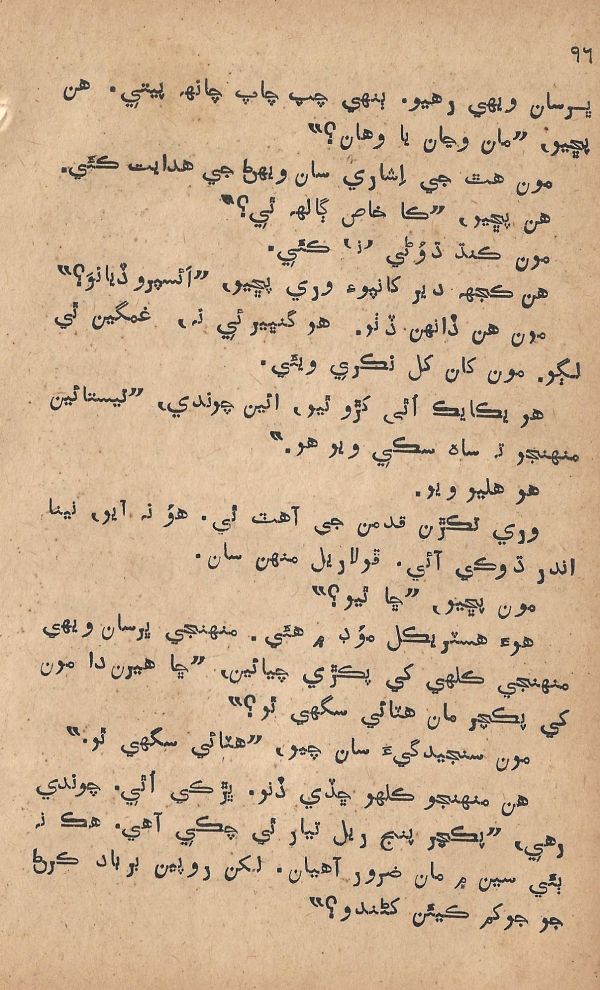 ۹٦
ڀرسان ويهي رهيو. ٻنهي چپ چاپ چانھ پيتي. هن
پڇيو، ”مان وڃان يا وهان؟“
مون هٿ جي اِشاري سان ويهڻ جي هدايت ڪئي.
هن پڇيو، ”ڪا خاص ڳالھ ٿي؟“
مون ڪنڌ ڌوڻي ’نہ‘ ڪئي.
هن ڪجھہ دير کانپوءِ وري پڇيو، ”آئسپرو ڏيانوَ؟“
مون هن ڏانهن ڏٺو. هو گنڀير ئي نہ، غمگين ٿي
لڳو. مون کان کل نڪري ويئي.
هو يڪايڪ اُٿي کڙو ٿيو، ائين چوندي، ”ٿيستائين
منهنجو تہ ساھ سڪي ويو هو.“
هو هليو ويو.
وري ٿڪڙن قدمن جي آهٽ ٿي. هوُ نہ آيو، نينا
اندر ڌوڪي آئي. ڦولاريل منهن سان.
مون پڇيو، ”ڇا ٿيو؟“
هوءَ هسٽريڪل موُڊ ۾ هئي. منهنجي ڀرسان ويهي
منهنجي ڪلهي کي پڪڙي چيائين، ”ڇا هيرن دا مون
کي پڪچر مان هٽائي سگهي ٿو؟“
مون سنجيدگيءَ سان چيو، ”هٽائي سگهي ٿو.“
هن منهنجو ڪلهو ڇڏي ڏنو. ڀڙڪي اُٿي. چوندي
رهي، ”پڪچر پنج ريل تيار ٿي چڪي آهي. هڪ نہ
ٻئي سين ۾ مان ضرور آهيان. ليڪن روپين برباد ڪرڻ
جو جوکم ڪيئن کڻندو؟“